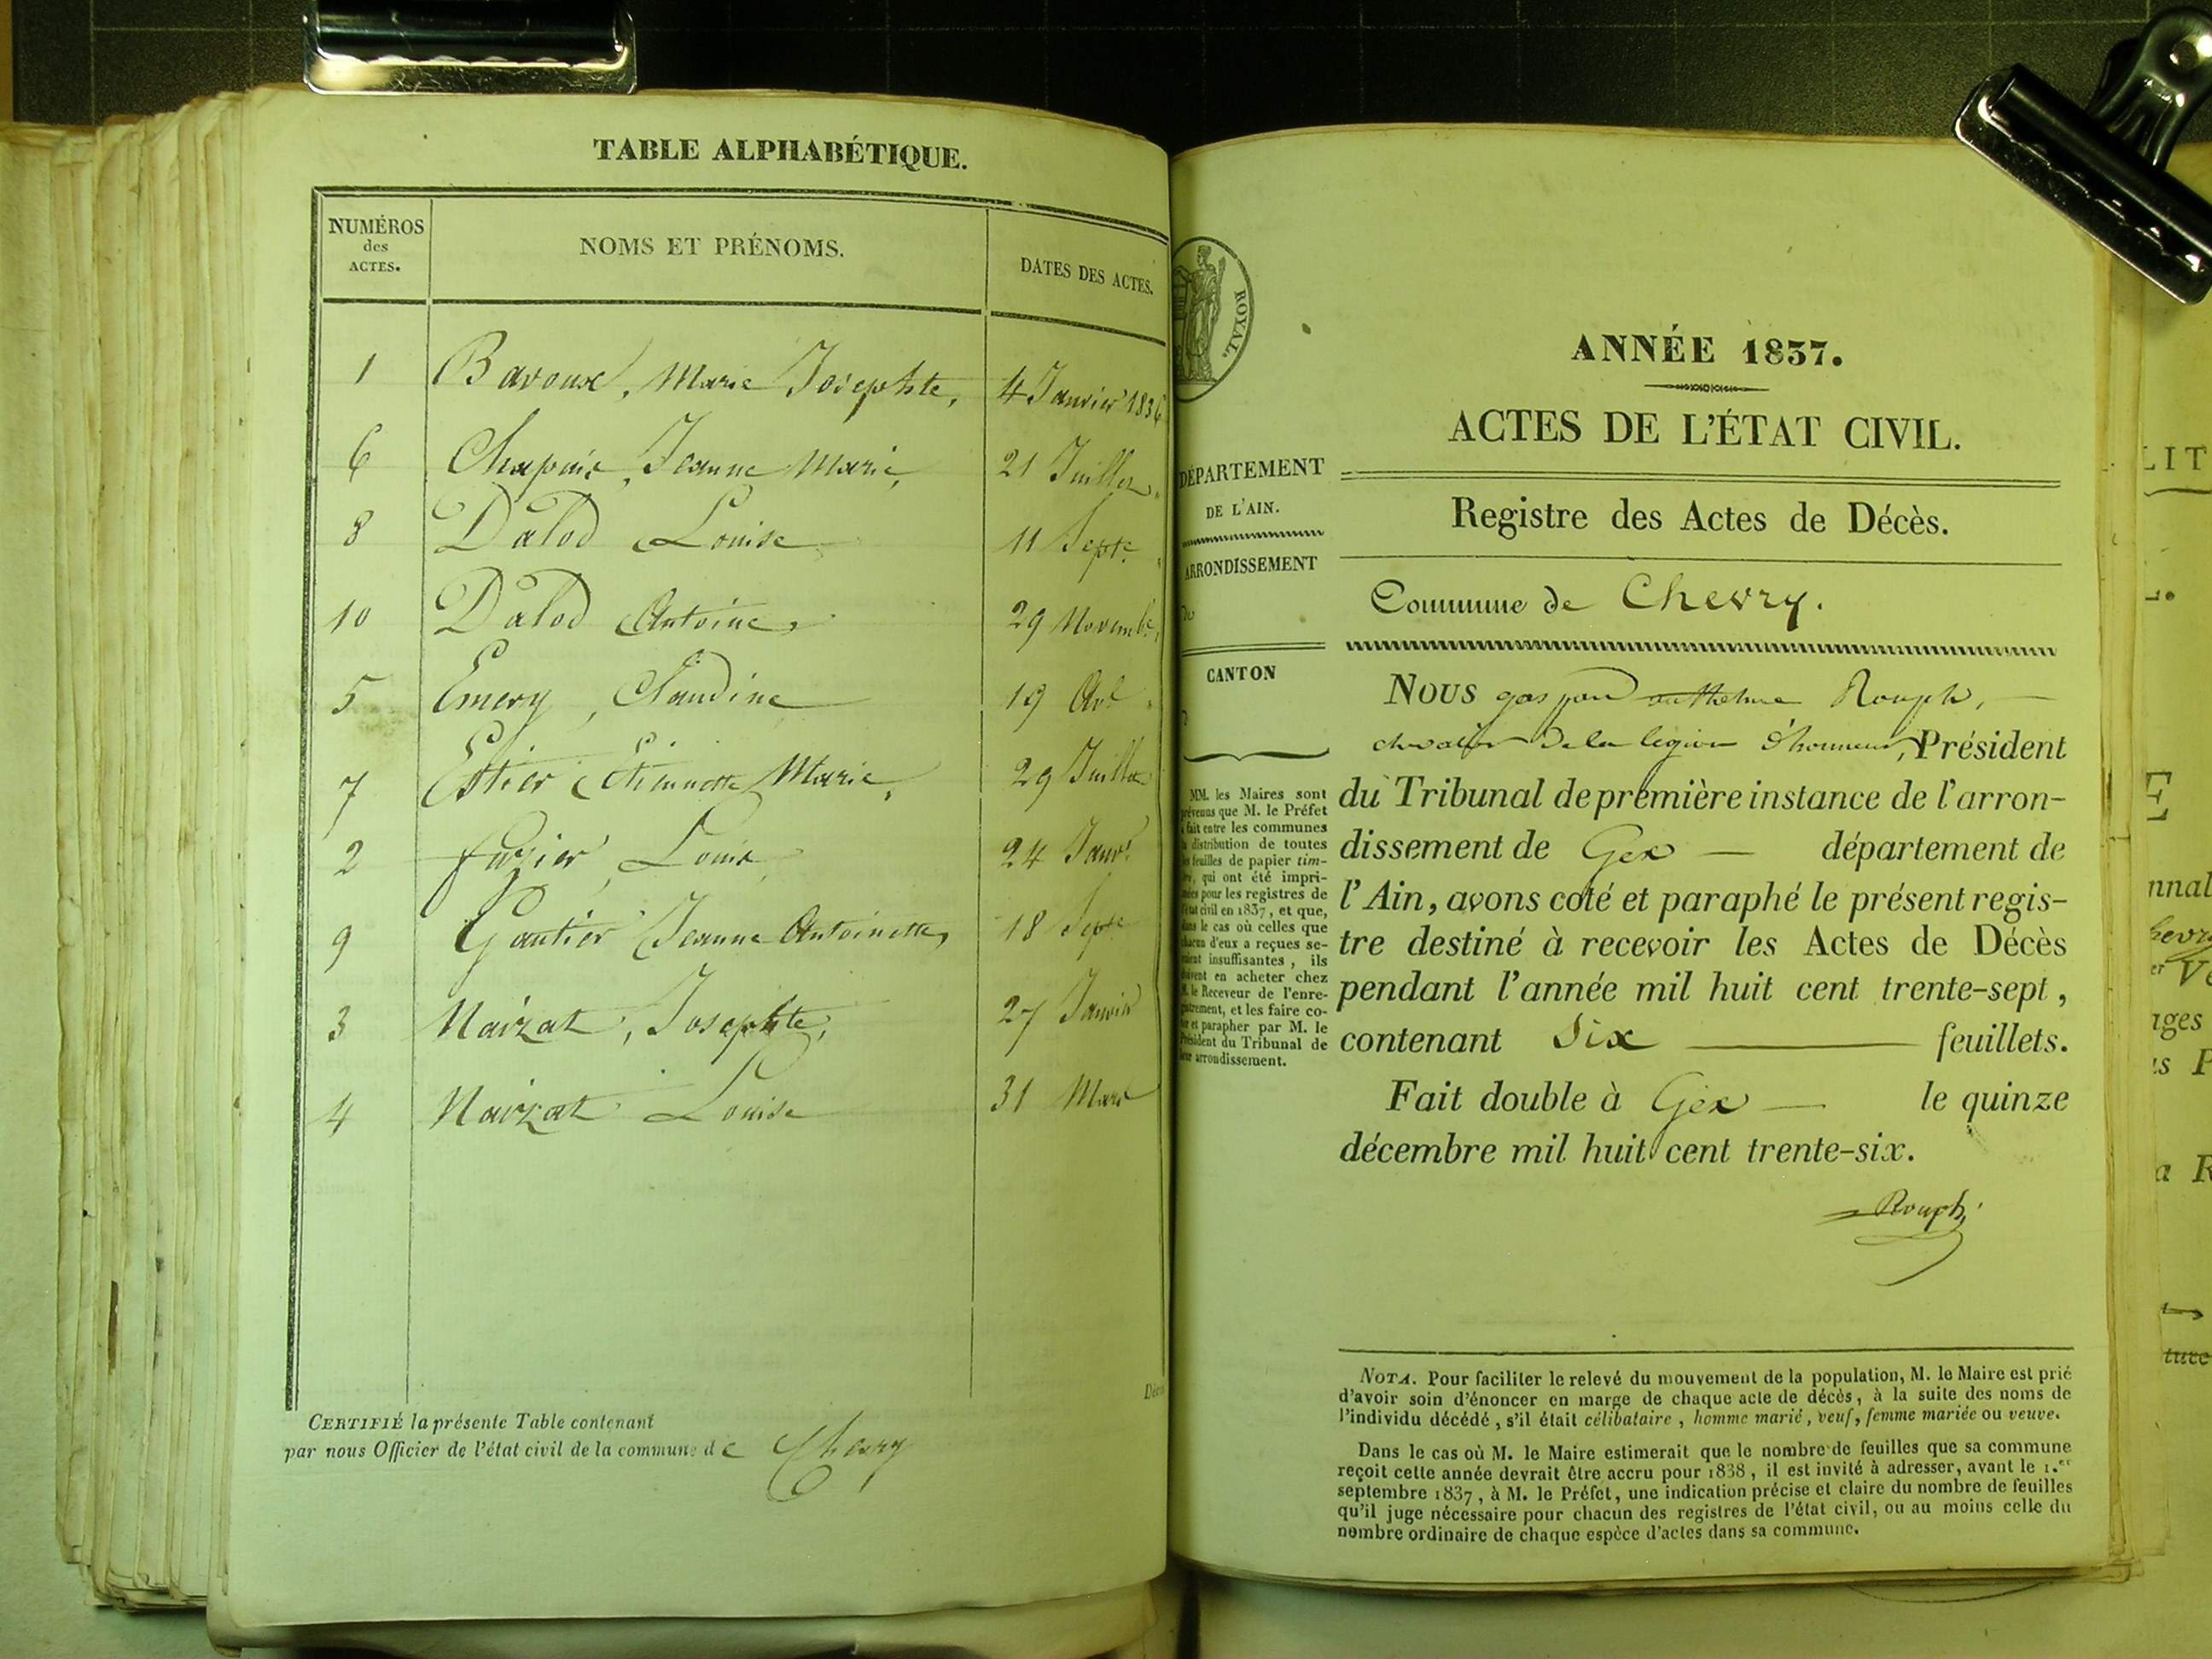 TABLE ALPHABÉTIQUE.
NUMÉROS des ACTES.
NOMS ET PRÉNOMS.
DATES DES ACTES.
1 Bavoux, Marie Josephte, 4 Janvier 1836
6 Chapuis, Jeanne Marie, 21 Juillet
8 Dalod Louise 11 Septe
10 Dalod Antoine, 29 Novembe
5 Emery, Claudine 19 Avl
7 Estier Etiennette Marie, 29 Juillet
2 Louis 24 Janvr
9 Gautier Jeanne Antoinette, 18 Septe
3 Maizat, Josephte, 27 Janvier
4 Maizat Louise 31 Mars
CERTIFIÉ la présente Table contenant
par nous Officier de l'état civil de la commune de Chevry
ROYAL.
ANNÉE 1837.
ACTES DE L'ÉTAT CIVIL.
DÉPARTEMENT
DE L'AIN.
ARRONDISSEMENT
de
CANTON
d
MM. les Maires sont
prévenus que M. le Préfet
a fait entre les communes
la distribution de toutes
les feuilles de papier tim-
bré, qui ont été impri-
mées pour les registres de
l'état civil en 1837, et que,
dans le cas où celles que
chacun d'eux a reçues se-
raient insuffisantes, ils
doivent en acheter chez
M. le Receveur de l'enre-
gistrement, et les faire co-
ter et parapher par M. le
Président du Tribunal de
leur arrondissement.
Registre des Actes de Décès.
Commune de Chevry.
NOUS gaspard anthelme Rouph,
chevalier de la légion d'honneur, Président
du Tribunal de première instance de l'arron-
dissement de Gex — département de
l'Ain, avons coté et paraphé le présent regis-
tre destiné à recevoir les Actes de Décès
pendant l'année mil huit cent trente-sept,
contenant Six — feuillets.
Fait double à Gex — le quinze
décembre mil huit cent trente-six.
Rouph
NOTA. Pour faciliter le relevé du mouvement de la population, M. le Maire est prié
d'avoir soin d'énoncer en marge de chaque acte de décès, à la suite des noms de
l'individu décédé, s'il était célibataire, homme marié, veuf, femme mariée ou veuve.
Dans le cas où M. le Maire estimerait que le nombre de feuilles que sa commune
reçoit cette année devrait être accru pour 1838, il est invité à adresser, avant le 1.er
septembre 1837, à M. le Préfet, une indication précise et claire du nombre de feuilles
qu'il juge nécessaire pour chacun des registres de l'état civil, ou au moins celle du
nombre ordinaire de chaque espèce d'actes dans sa commune.